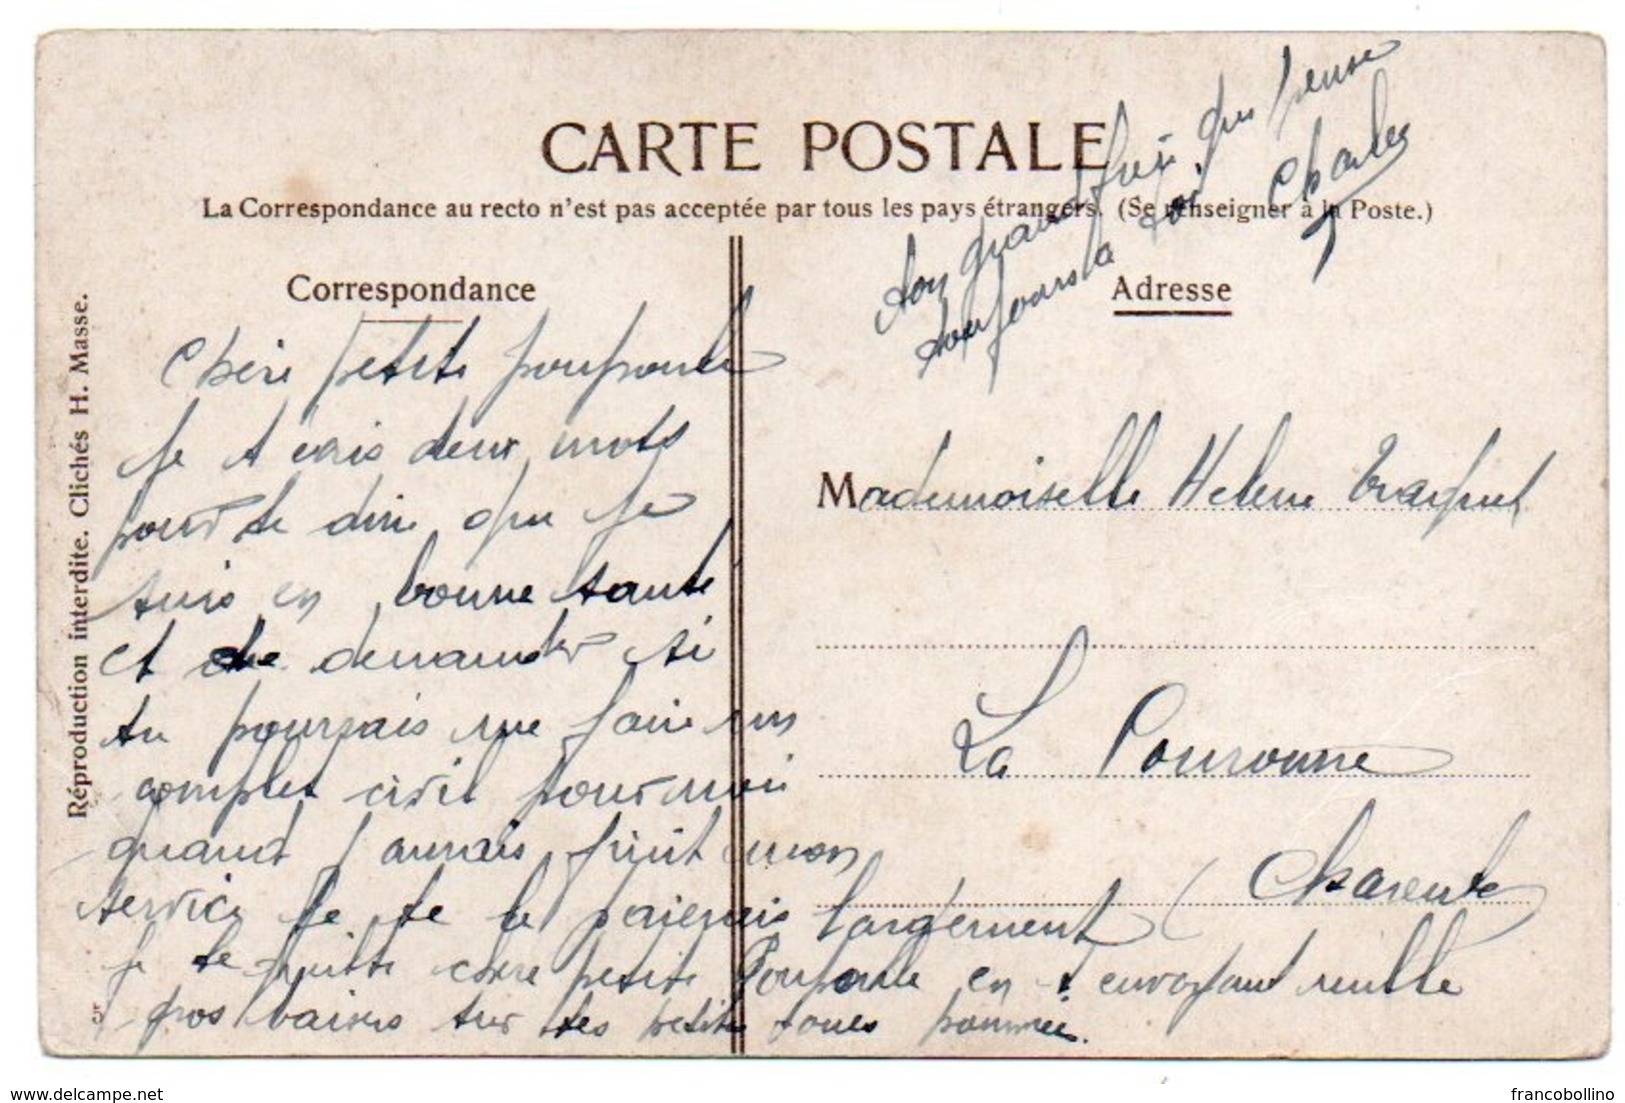 CARTE POSTALE
La Correspondance au recto n'est pas acceptée par tous les pays étrangers. (Se renseigner à la Poste.)
ton grand frère qui pense
toujours a toi
Charles
Correspondance
Adresse
Chère petite poupoule
Je t ecris deux mots
pour te dire que je
suis en bonne santé
et de demander si
tu pourrais me faire un
complet civil pour moi
quand j aurrais finit mon
service je te le paierais largement
je te quitte chere petite Poupoule en t envoyant mille
gros baisers sur tes petite joues pommée.
Mademoiselle Helene
La Couronne
(Charente)
Réproduction interdite. Clichés H. Masse.
delcampe.net
francobollino